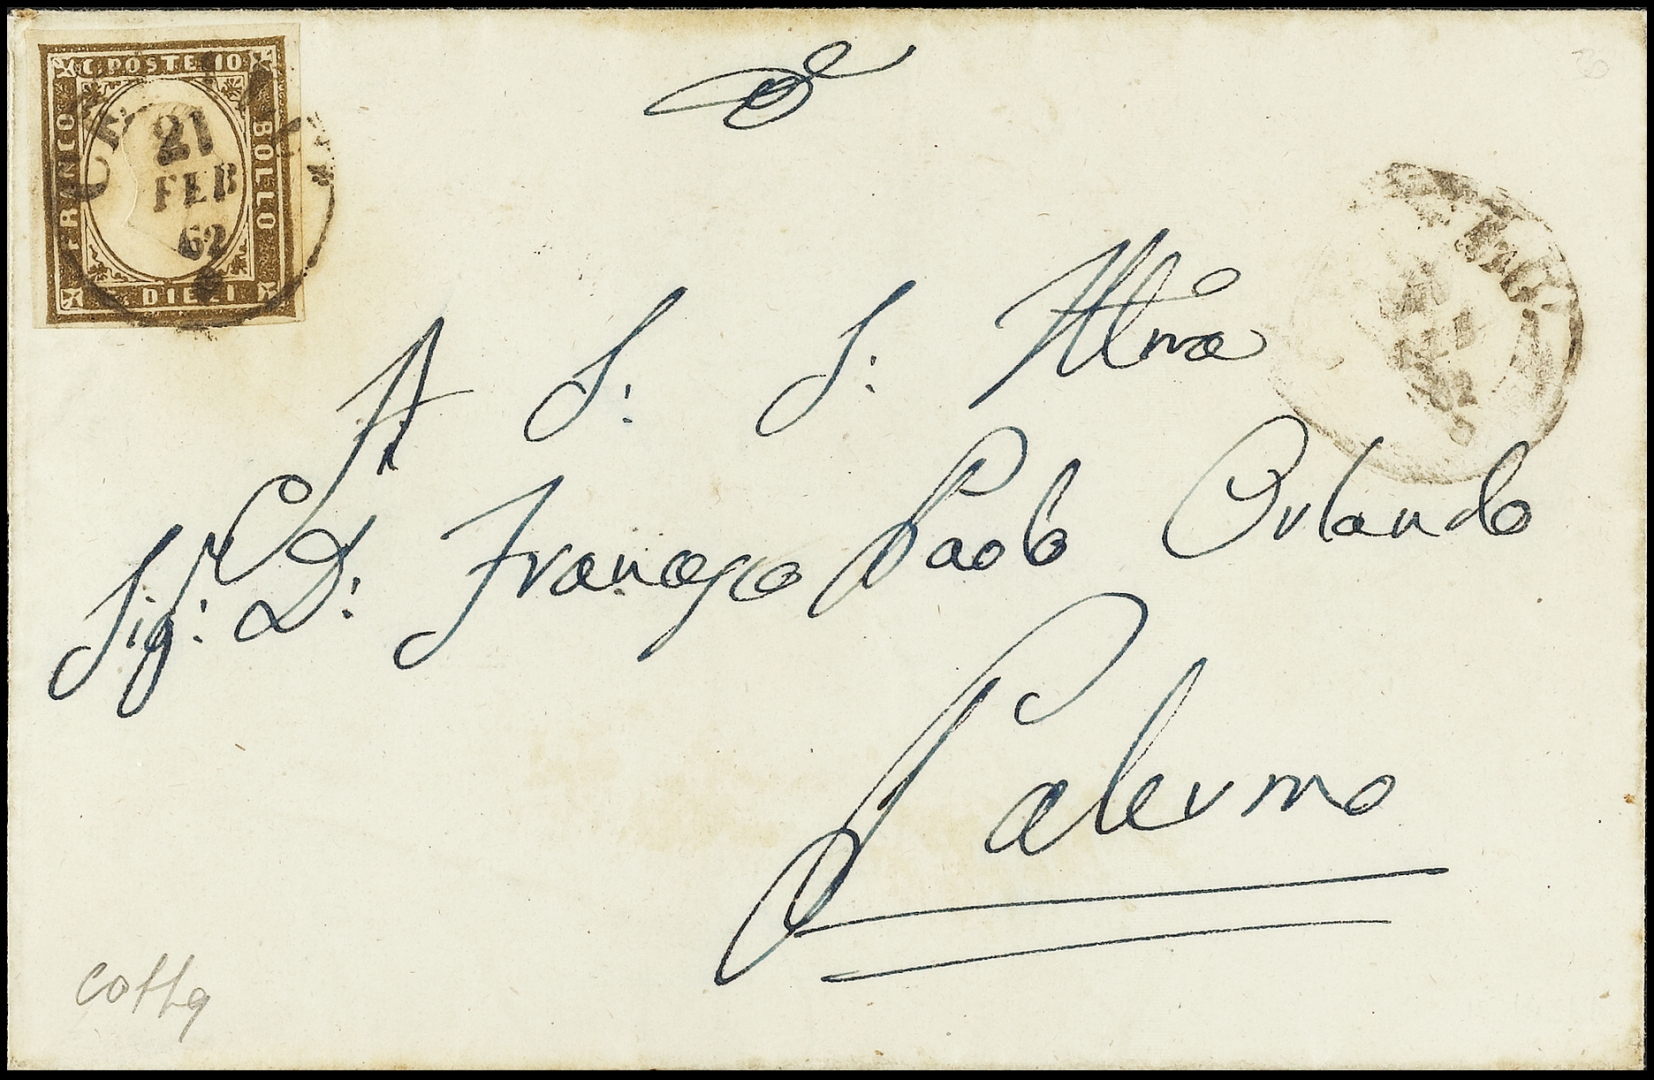 C. POSTE 10
FRANCO
BOLLO
C. DIECI
21
FEB
62
A S: S: Illma
Sigr: D: Francesco Paolo Orlando
Palermo
62